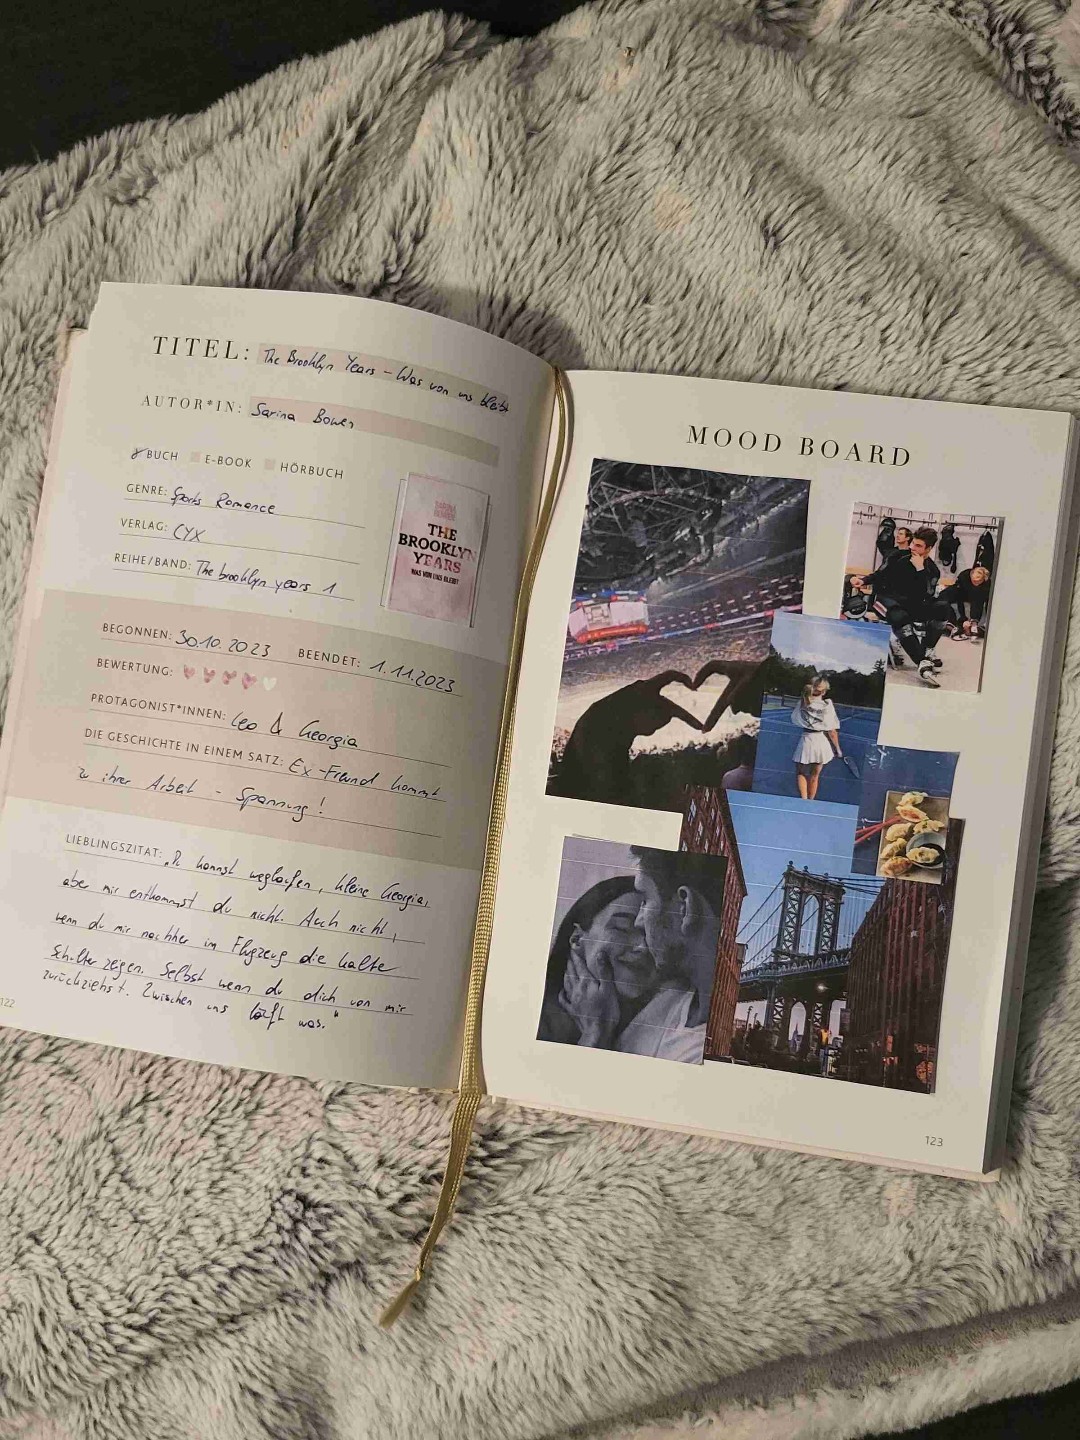 TITEL: The Brooklyn Years - Was von uns bleibt
AUTOR*IN: Sarina Bowen
BUCH E-BOOK HÖRBUCH
GENRE: Sports Romance
VERLAG: LYX
REIHE/BAND: The brooklyn years 1
SARINA
BOWEN
THE
BROOKLYN
YEARS
WAS VON UNS BLEIBT
BEGONNEN: 30.10.2023 BEENDET: 1.11.2023
BEWERTUNG:
PROTAGONIST*INNEN: Leo & Georgia
DIE GESCHICHTE IN EINEM SATZ: Ex-Freund kommt
zu ihrer Arbeit - Spannung!
LIEBLINGSZITAT: „Du kannst weglaufen, kleine Georgia,
aber mir entkommst du nicht. Auch nicht,
wenn du mir nachher im Flugzeug die kalte
Schulter zeigen. Selbst wenn du dich von mir
zurückziehst. Zwischen uns läuft was."
122
MOOD BOARD
123